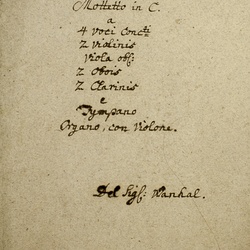 Mottetto in C.
a
4 voci Conc:ti
2 Violinis
Viola obl:
2 Obois
2 Clarinis
e
Tympano
Organo, con Violone.
Del Sig: Wankal.